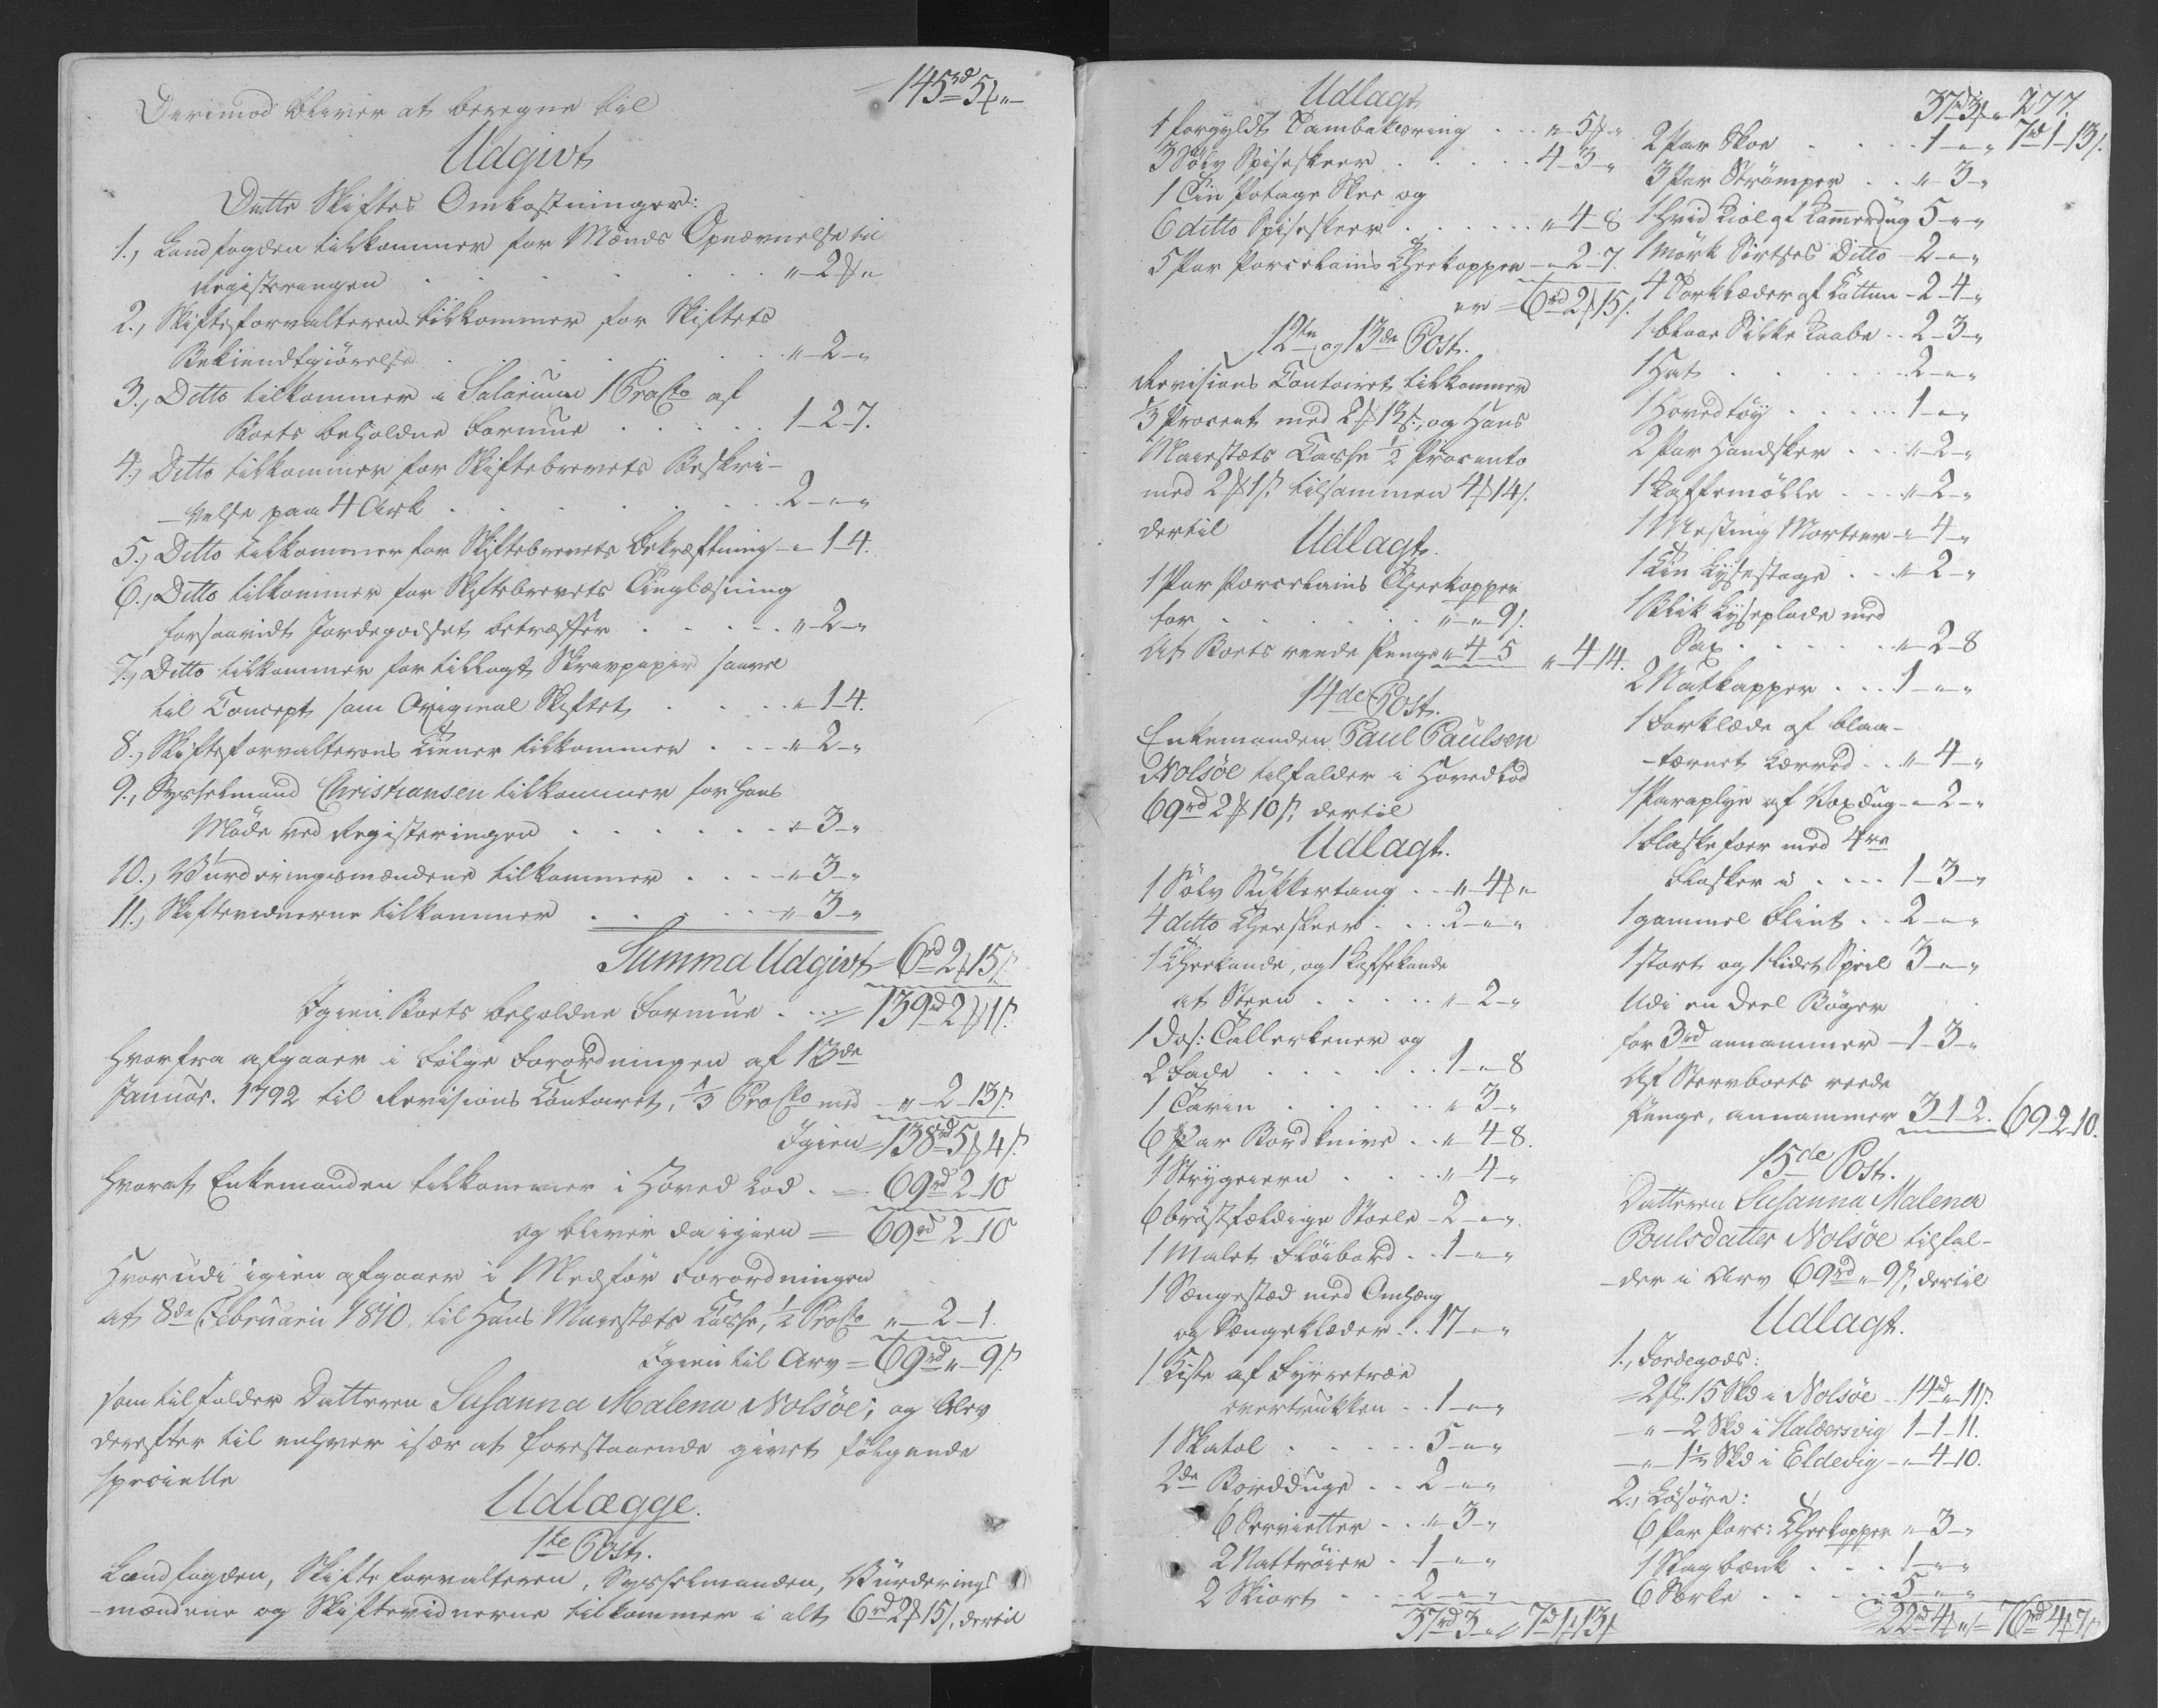 145rd 5ƒ "
Derimod bliver at beregne til
Udgivt
Dette Skiftes Omkostninger:
1., Landfogden tilkommer for Mænds Opnævnelse til
Registeringen . . . . . " 2ƒ "
2., Skifteforvalteren tilkommer for Skiftets
Bekiendtgiörelse . . . . . " 2 "
3., Ditto tilkommer i Salarium 1 ProCto af
Boets beholdne Formue . . . . . 1 - 2 - 7.
4., Ditto tilkommer for Skiftebrevets Beskri-
-velse paa 4 Ark . . . . . 2 - " - "
5., Ditto tilkommer for Skiftebrevets Bekræftning - " - 1 - 4.
6., Ditto tilkommer for Skiftebrevets Tinglæsning
forsaavidt Jordegodset betræffer . . . . " - 2 - "
7., Ditto tilkommer for tillagt Skrivpapir saavel
til Concept som Original Skiftet . . . . " - 1 - 4.
8., Skifteforvalterens Tiener tilkommer . . . " - 2 - "
9., Sysselmand Christiansen tilkommer for Hans
Möde ved Registeringen . . . . . " - 3 - "
10., Vurderingsmændene tilkommer . . . . " - 3 - "
11., Skiftevidnerne tilkommer . . . . . " - 3 - "
Summa Udgivt = 6rd 2ƒ 15ß
Igien Boets beholdne Formue . . . = 139rd 2ƒ 1ß
Hvorfra afgaaer i Fölge Forordningen af 13de
Januar. 1792 til Revisions Contoiret, 1/3 ProCto med - " - 2 - 13ß
Igien = 138rd 5ƒ 4ß
Hvoraf Enkemanden tilkommer i Hoved Lod . = 69rd 2 - 10
og bliver da igien = 69rd 2 - 10
Hvorudi igien afgaaer i Medför Forordningen
af 8de Februarii 1810. til Hans Maiestæts Casse, 1/2 ProCto " - 2 - 1.
Igien til Arv = 69rd " - 9ß
som tilfalder Datteren Susanna Malena Nolsöe; og blev
derefter til enhver især af forestaaende givet fölgende
specielle
Udlægge.
1ste Post.
Landfogden, Skifteforvalteren, Sysselmanden, Vurderings
-mændene og Skiftevidnerne tilkommer i alt 6rd 2ƒ 15ß, dertil
Udlagt
1 forgyldt Tambakisring . . . " - 5ƒ "
3 Sölv Spiseskeer . . . . . 4 - 3 - "
1 Tin Potage Skee og
6 ditto Spiseskeer . . . . . " - 4 - 8
5 Par Porcelains Theekopper - " - 2 - 7.
er = 6rd 2ƒ 15ß.
12te og 13de Post.
Revisions Contoiret tilkommer
1/3 Procent med 2ƒ 13ß, og Hans
Maiestæts Casse 1/2 Procento
med 2ƒ 1ß. tilsammen 4ƒ 14ß.
dertil
Udlagt.
1 Par Porcelains Theekopper
for . . . . . " - " 9ß.
Af Boets reede Penge " - 4 - 5 " 4 - 14.
14de Post.
Enkemanden Paul Paulsen
Nolsöe tilfalder i Hovedlod
69rd 2ƒ 10ß, dertil
Udlagt.
1 Sölv Sukkertang . . " 4ƒ "
4 ditto Theeskeer . . . 2 - " - "
1 Theekande, og 1 Kaffekande
af Steen . . . . . " - 2 - "
1 Dos: Tallerkener og
2 Fade . . . . . 1 - " - 8
1 Tarin . . . . . " 3 - "
6 Par Bordknive . . " - 4 - 8.
1 Strygeiern . . . . " - 4 - "
6 bröstfældige Stoele - 2 - " - "
1 Malet Flöibord . . 1 - " - "
1 Sængestæd med Omhæng
og Sængeklæder . . 17 - " - "
1 Kiste af Fyrretræe
overtrukken . . 1 - " - "
1 Skatol . . . . . 5 - " - "
2de Bordduge . . 2 - " - "
6 Servietter . . " - 3 - "
2 Nattröier . 1 - " - "
2 Skiort . . 2 - " - "
37rd 3 - " / 7rd 1ƒ 13ß
277.
37rd 3ƒ "
2 Par Skoe . . . . 1 - " - " 7rd 1 - 13ß.
3 Par Strömper . . " - 3 - "
1 Hvid Kiol af Kammerdug 5 - " - "
1 Mörk Sirtses Ditto - 2 - " - "
4 Torklæder af Cattun - 2 - 4 - "
1 blaae Silke Kaabe . . 2 - 3 - "
1 Hat . . . . . 2 - " - "
1 Hovedtöy . . . . . 1 - " - "
2 Par Handsker . . . " - 2 - "
1 Kaffemölle . . . " - 2 - "
1 Messing Morteer - " - 4 - "
1 Tin Lysestage . . " - 2 - "
1 Blik Lyseplade med
Sax . . . . . " - 2 - 8
2 Natkapper . . . 1 - " - "
1 Forklæde af blaa-
-tærnet Lærred . . " - 4 - "
1 Paraplye af Voxdug - " - 2 - "
1 Flaskefoer med 4re
Flasker i . . . . 1 - 3 - "
1 gammel Flint . . 2 - " - "
1 stort og 1 lidet Speil 3 - " - "
Udi en Deel Böger
for 3rd annammer - 1 - 3 - "
Af Stervboets reede
Penge, annammer 31 - 2. 69 - 2 - 10.
15de Post.
Datteren Susanna Malena
Poulsdatter Nolsöe tilfal-
-der i Arv 69rd " - 9ß, dertil
Udlagt.
1., Jordegods:
= 2 fl. 15 Skd i Nolsöe - 14rd " 11ß.
- " - 2 Skd i Haldersvig 1 - 1 - 11.
- " - 1½ Skd i Eldevig - " - 4 - 10.
2., Lösöre:
6 Par Porc: Theekopper " - 3 - "
1 Slagbænk . . . . 1 - " - "
6 Særke . . . . . 5 - " - "
22rd 4ƒ " = 76rd 4ƒ 7ß